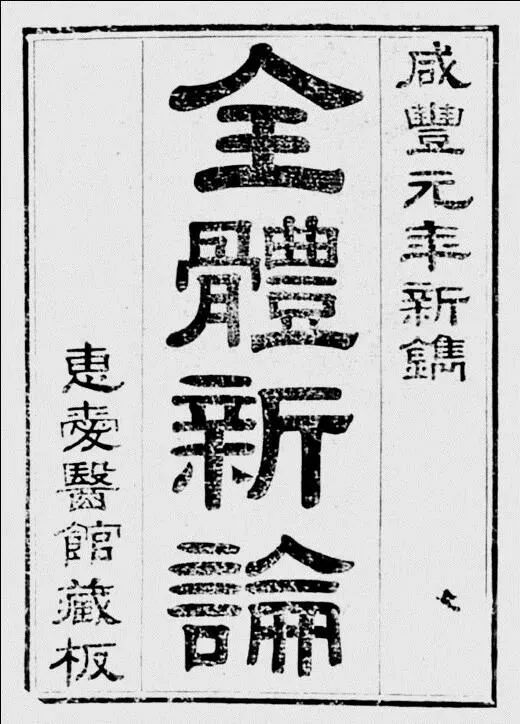 咸豐元年新鐫
全體新論
惠愛醫館藏板